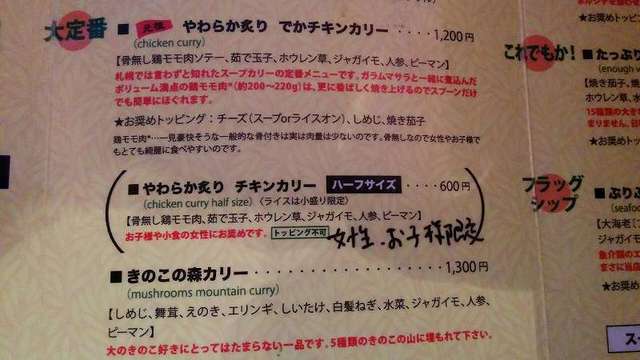 大定番
■ 元祖 やわらか炙り でかチキンカリー ‥‥ 1,200円
(chicken curry)
【骨無し鶏モモ肉ソテー、茹で玉子、ホウレン草、ジャガイモ、人参、ピーマン】
札幌では言わずと知れたスープカリーの定番メニューです。ガラムマサラと一緒に煮込んだ
ボリューム満点の鶏モモ肉*(約200～220g)は、更に香ばしく焼き上げるのでスプーンだけ
でも簡単にほぐれます。
★お奨めトッピング：チーズ(スープorライスオン)、しめじ、焼き茄子
鶏モモ肉*…一見豪快そうな一般的な骨付きは実は肉量は少ないのです。骨無しなので女性やお子様で
もとても綺麗に食べやすいのです。
■ やわらか炙り チキンカリー ハーフサイズ ‥‥ 600円
(chicken curry half size) 〈ライスは小盛り限定〉
【骨無し鶏モモ肉、茹で玉子、ホウレン草、ジャガイモ、人参、ピーマン】
お子様や小食の女性にお奨めです。 トッピング不可 女性、お子様限定
■ きのこの森カリー ‥‥‥‥‥‥‥ 1,300円
(mushrooms mountain curry)
【しめじ、舞茸、えのき、エリンギ、しいたけ、白髪ねぎ、水菜、ジャガイモ、人参、
ピーマン】
大のきのこ好きにとってはたまらない一品です。5種類のきのこの山に埋もれて下さい。
★お奨めトッ
これでもか！
■ たっぷり
(enough v
【焼き茄子、
ホウレン草、
15種類の大き
まりません。
★お奨めトッ
フラッグ
シップ
■ ぷりぷ
(seafoo
【大海老
ジャガイモ
魚介類のエ
まさに当店
★お奨め
ス